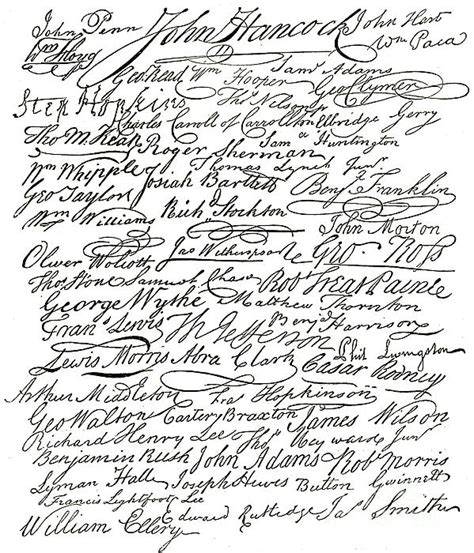 John Penn John Hancock John Hart
Wm Floyd Wm Paca
Geo Read Wm Hooper Saml Adams
Geo Clymer
Step Hopkins Thos Nelson jr
Charles Carroll of Carrollton Elbridge Gerry
Tho M. Kean Roger Sherman Saml Huntington
Wm Whipple Josiah Bartlett Thomas Lynch Junr
Benj Franklin
Geo Taylor
Wm Williams Richd Stockton
John Morton
Oliver Wolcott Jno Witherspoon Geo. Ross
Thos Stone Samuel Chase Robt Treat Paine
George Wythe Matthew Thornton
Frans Lewis Th Jefferson Benj Harrison
Lewis Morris Abra Clark Phil Livingston
Cæsar Rodney
Arthur Middleton Fras Hopkinson
Geo Walton Carter Braxton James Wilson
Richard Henry Lee Thos Heyward Junr
Benjamin Rush John Adams Robt Morris
Lyman Hall Joseph Hewes Button Gwinnett
Francis Lightfoot Lee
William Ellery Edward Rutledge Jas Smith